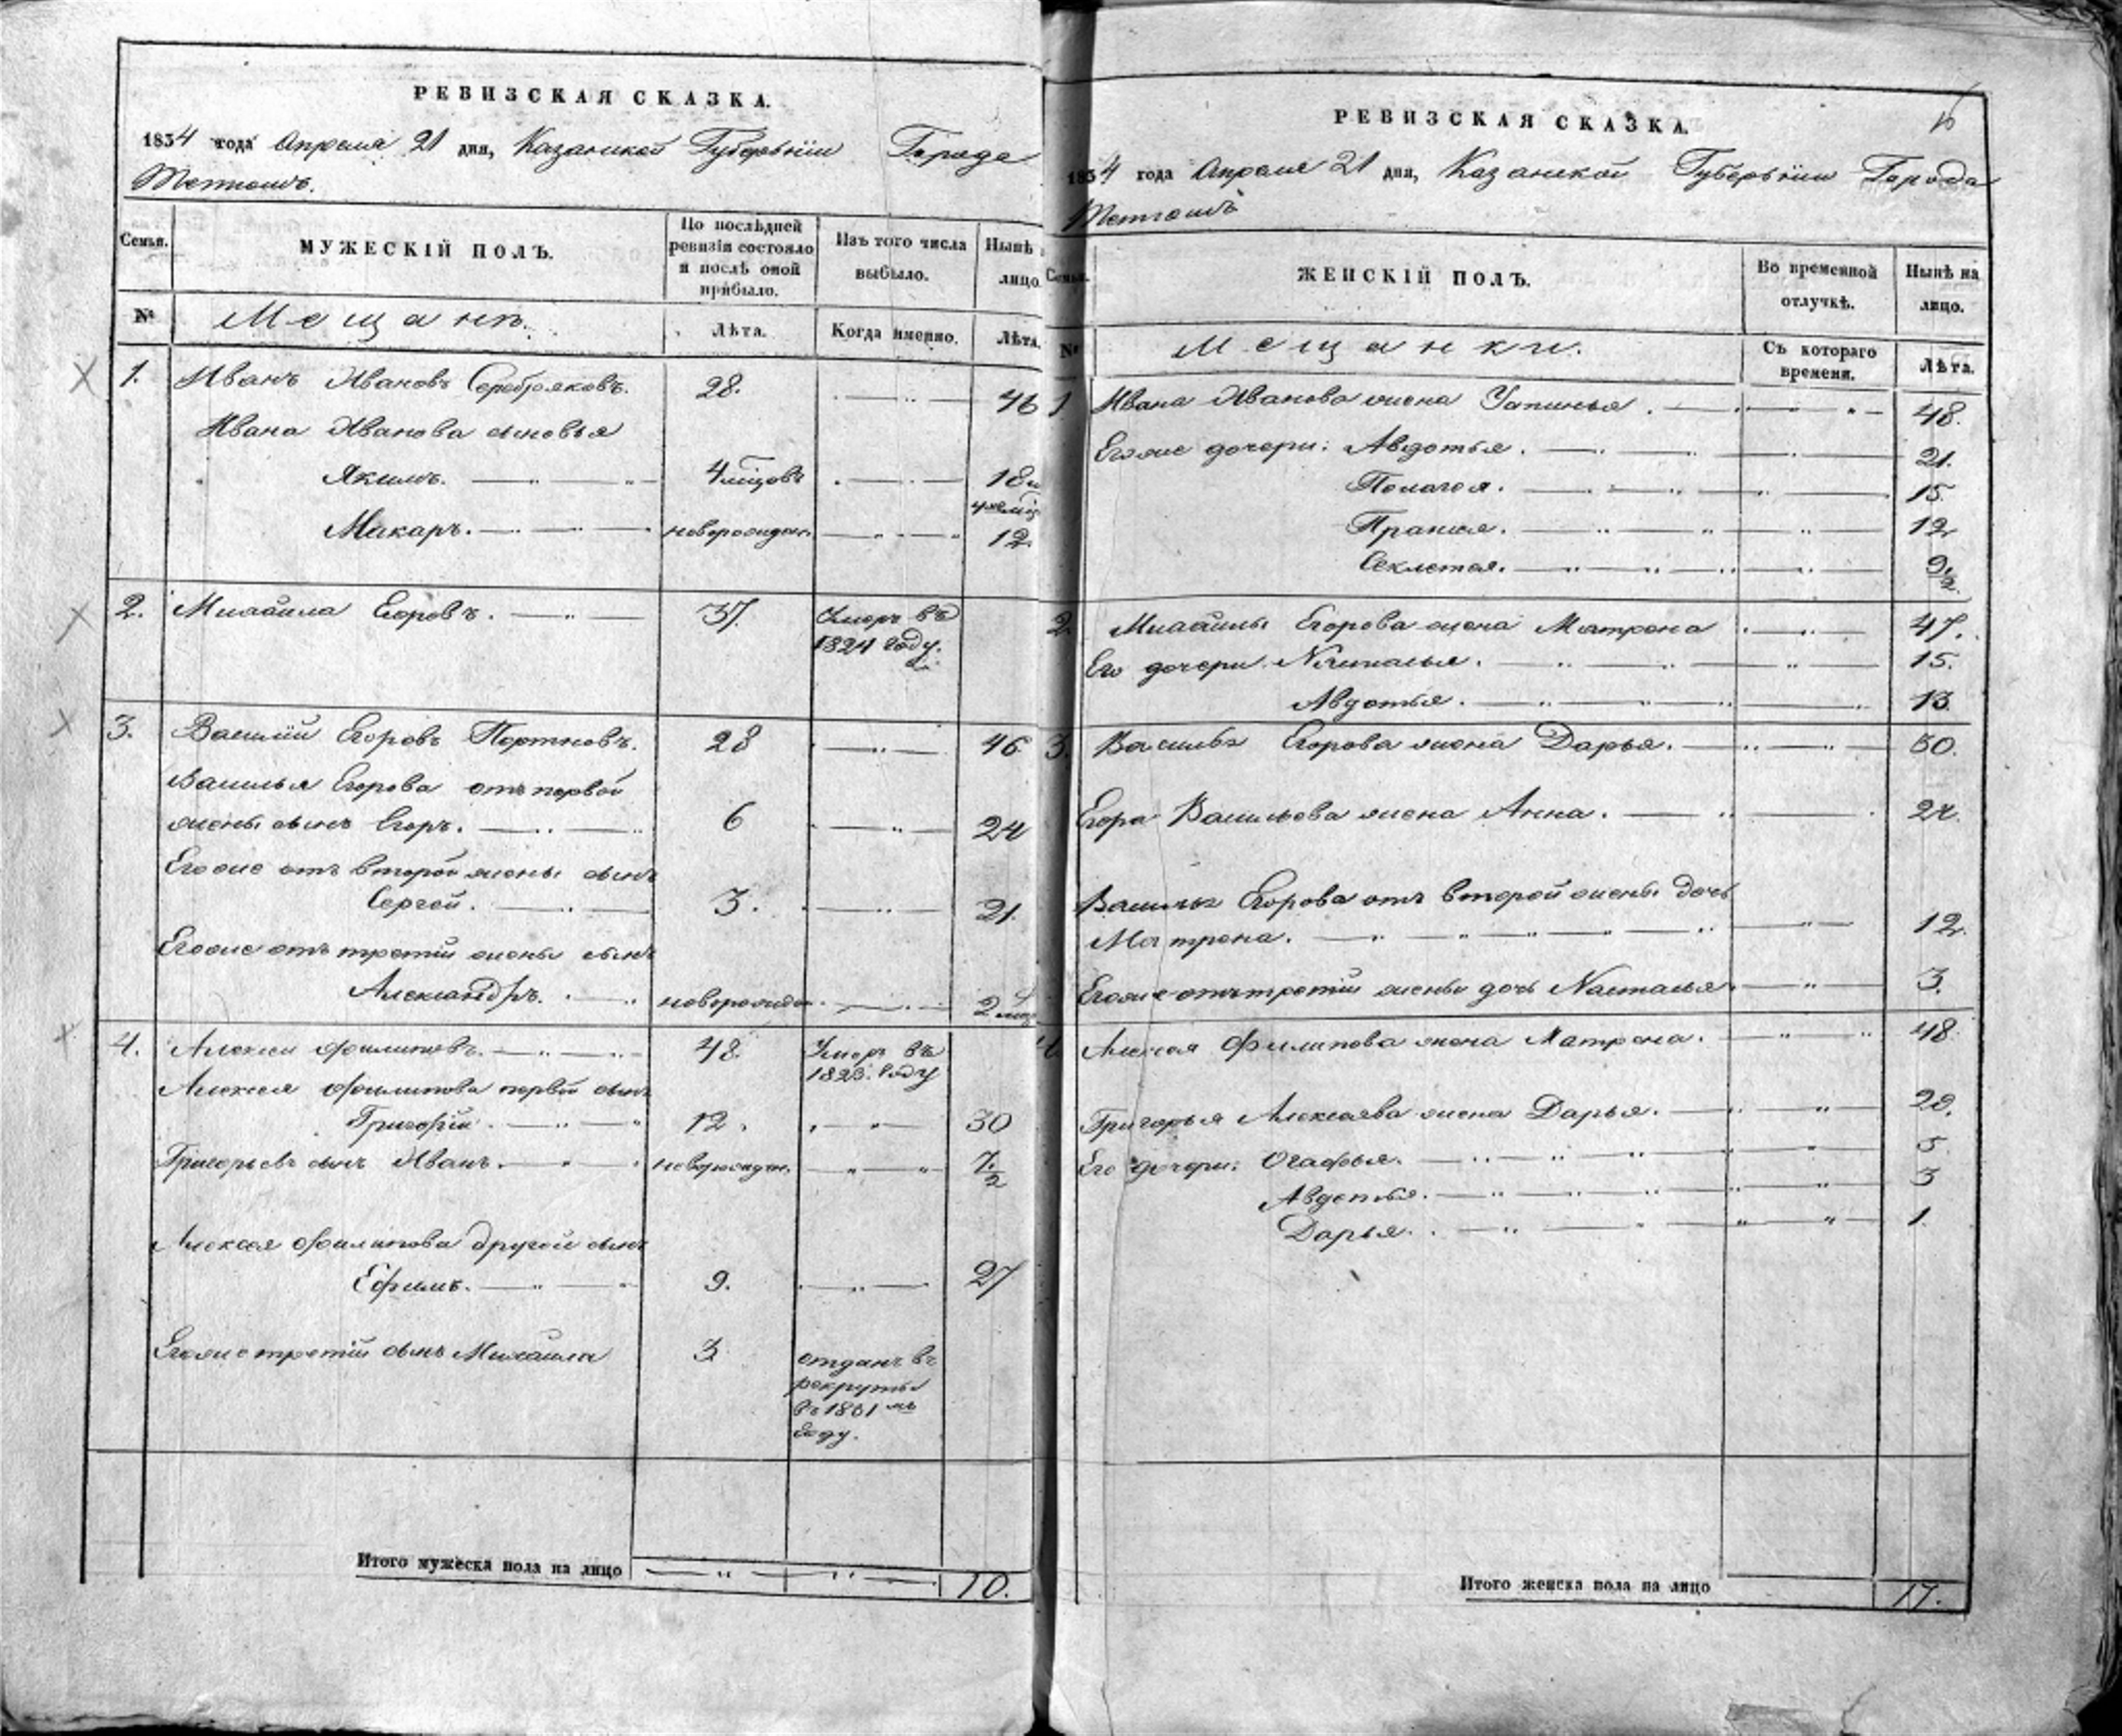 РЕВИЗСКАЯ СКАЗКА.
1834 года Апреля 21 дня, Казанской Губернiи Города
Тетюшъ.
Семьи.
МУЖЕСКIЙ ПОЛЪ.
По послѣдней ревизiи состояло и послѣ оной прибыло.
Изъ того числа выбыло.
Нынѣ
лицо.
№
Мещанъ.
Лѣта.
Когда именно.
Лѣта.
1. Иванъ Ивановъ Серебряковъ. 28. 46
Ивана Иванова сыновья
Якимъ. 4 мцовъ 18
Макаръ. новорожден. 12.
2. Михайла Егоровъ. 37. Умеръ въ
1821 году.
3. Василiй Егоровъ Портновъ. 28 46
Василья Егорова отъ первой
жены сынъ Егоръ. 6 24
Егоже отъ второй жены сынъ
Сергей. 3. 21.
Егоже отъ третiй жены сынъ
Александръ. новорожден. 2
4. Алексей Филиповъ. 48. Умеръ въ
1823. году
Алексея Филипова первой сынъ
Григорiй. 12. 30
Григорьевъ сынъ Иванъ. новорожден. 7/2
Алексея Филипова другой сынъ
Ефимъ. 9. 27
Егоже третiй сынъ Михайла 3 отданъ въ
рекруты
въ 1831 мъ
году.
Итого мужеска пола на лицо 10.
РЕВИЗСКАЯ СКАЗКА.
1834 года Апреля 21 дня, Казанской Губернiи Города
Тетюшъ
Семьи.
ЖЕНСКIЙ ПОЛЪ.
Во временной отлучкѣ.
Нынѣ на лицо.
№
Мещанки.
Съ котораго времени.
Лѣта.
1 Ивана Иванова жена Устинья. 48.
Егоже дочери: Авдотья. 21.
Пелагея. 15.
12
Секлетея. 9/2
2. Михайлы Егорова жена Матрена 47.
Его дочери Наталья. 15.
Авдотья. 13.
3. Василья Егорова жена Дарья. 30.
Егора Васильева жена Анна. 24.
Василья Егорова отъ второй жены дочь
Матрена. 12.
Егоже отъ третiй жены дочь Настасья. 3.
4. Алексея Филипова жена Матрена. 48.
Григорья Алексеева жена Дарья. 29.
Его дочери: Огафья. 5.
Авдотья. 3
Дарья. 1.
Итого женска пола на лицо 17.